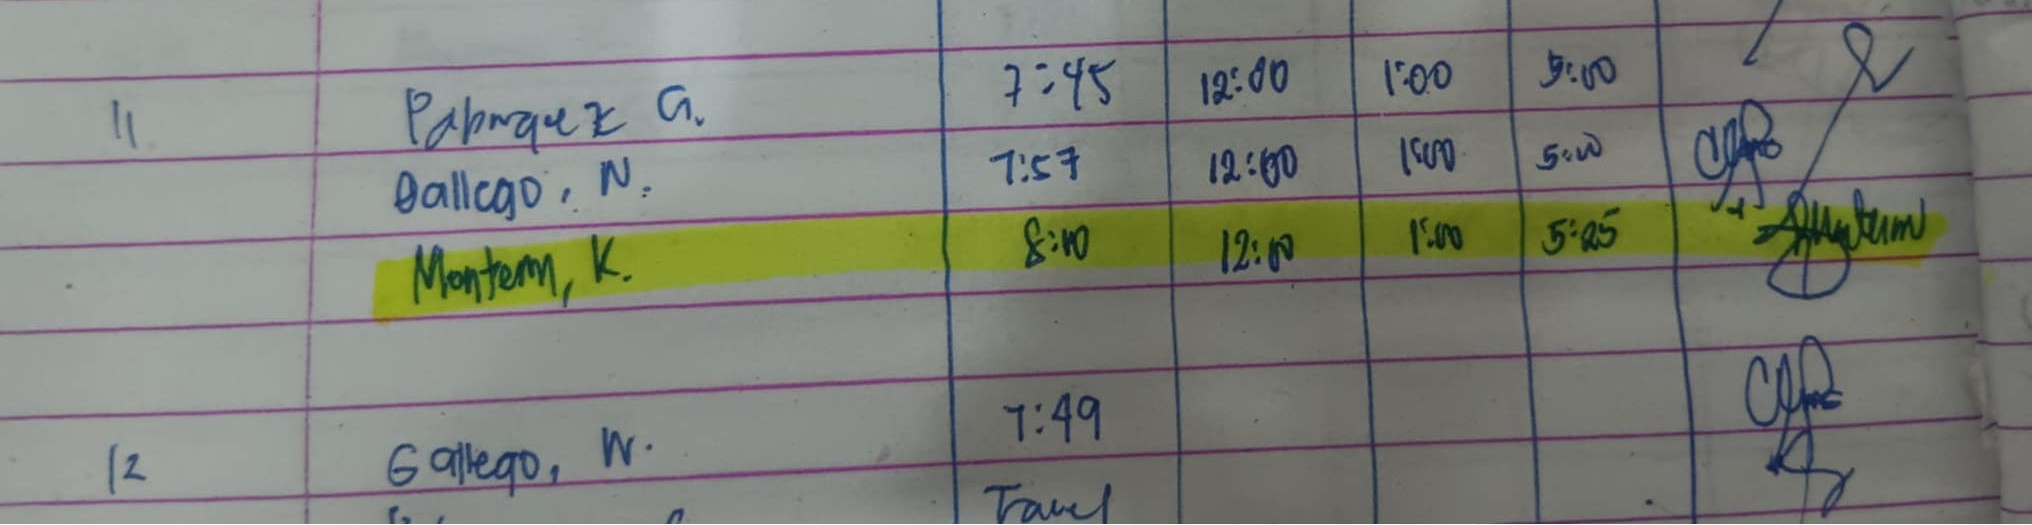 11 Pabnquez G. 7:45 12:00 1:00 5:00
Gallego, N. 7:57 12:00 1:00 5:00
Montem, K. 8:00 12:00 1:00 5:25
12 Gallego, N. 7:49
Travel